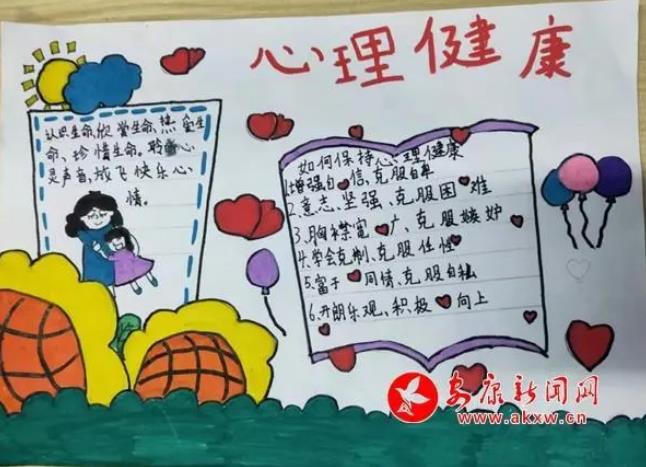 心理健康
认识生命,欣赏生命、热爱生
命、珍惜生命。聆听心
灵声音,放飞快乐心
情。
如何保持心理健康
1.增强自信、克服自卑
2.意志、坚强、克服困难
3.胸襟宽广、克服嫉妒
4.学会克制、克服任性
5.富于同情、克服自私
6.开朗乐观、积极向上
安康新闻网
www.akxw.cn